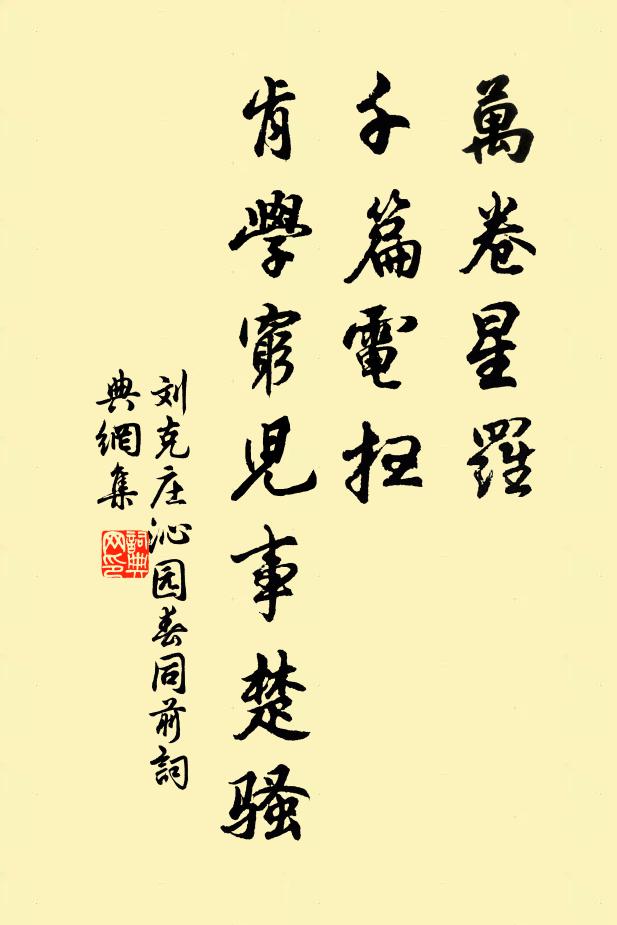 萬卷星羅
千篇電扫
肯學窮児事楚騷
刘克庄沁园春同前詞
典網集
詞典网印